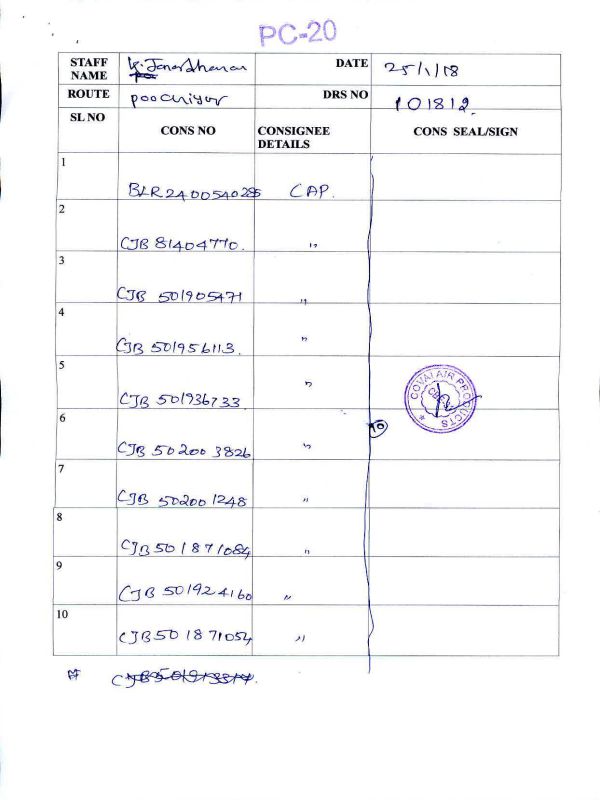 PC-20
STAFF NAME K. Janardhanan DATE 25/1/18
ROUTE poochiyur DRS NO 101812
SL NO CONS NO CONSIGNEE DETAILS CONS SEAL/SIGN
1 BLR2400540285 CAP.
2 CJB 81404770. "
3 CJB 501905471 "
4 CJB 501956113. "
5 CJB 501936733 "
COVAI AIR PRODUCTS
10
6 CJB 502003826 "
7 CJB 502001248 "
8 CJB 501871084 "
9 CJB 501924160 "
10 CJB501871054 "